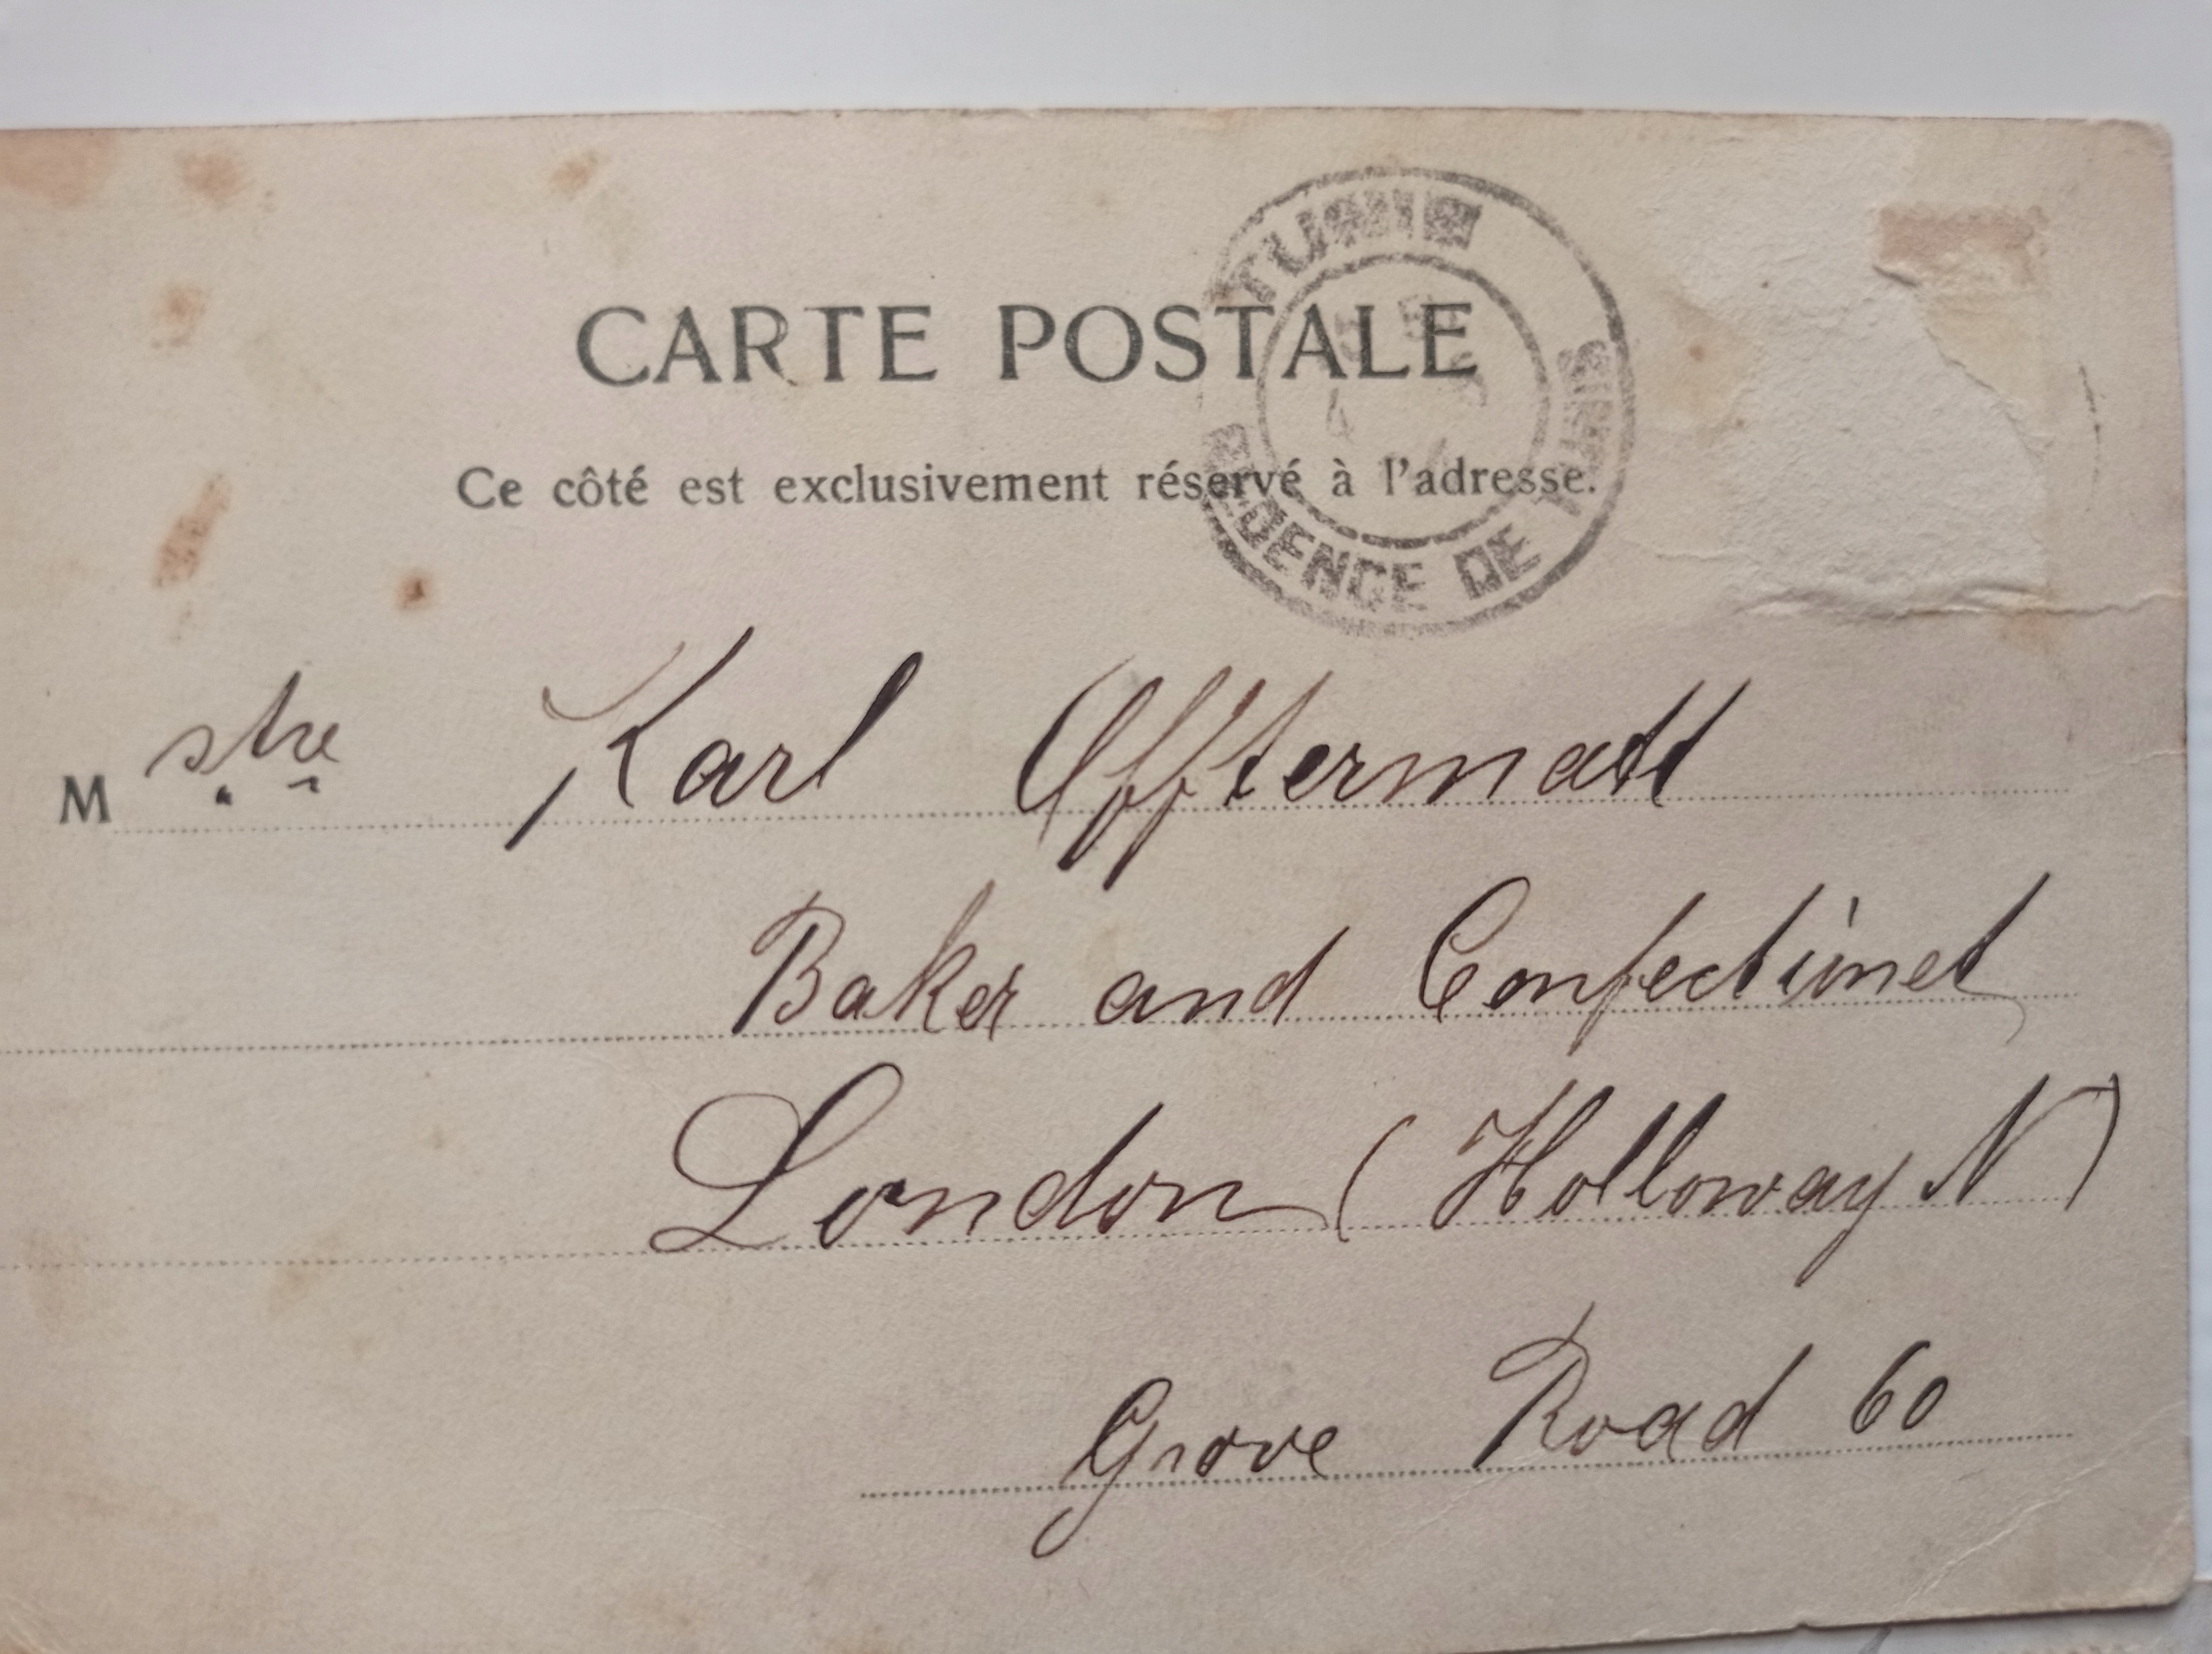 CARTE POSTALE
Ce côté est exclusivement réservé à l'adresse.
TUNIS
RÉGENCE DE TUNIS
M stre Karl Offtermatt
Baker and Confectionet
London (Holloway N)
Grove Road 60